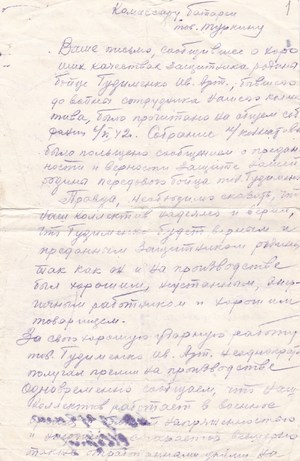 1
Комиссару батареи
тов. Туркину
Ваше письмо, сообщившее о хоро
ших качествах защитника родины
бойце Гудименко Ив. Арт., бывшего
до войны сотрудника нашего коллек
тива, было прочитано на общем соб
рании
Собрание н/коллектива
было польщено сообщением о предан
ности и верности защите нашей
родины передового бойца тов. Гудименко
Правда, необходимо сказать, что
наш коллектив надеялся и верил,
что Гудименко будет верным и
преданным защитником родины,
так как он и на производстве
был хорошим, неустанным, энер
гичным работником и хорошим
товарищем.
За свою хорошую ударную работу
тов. Гудименко Ив. Арт. неоднократно
получал премии на производстве
Одновременно сообщаем, что наш
коллектив работает в военное
напряженностью
и